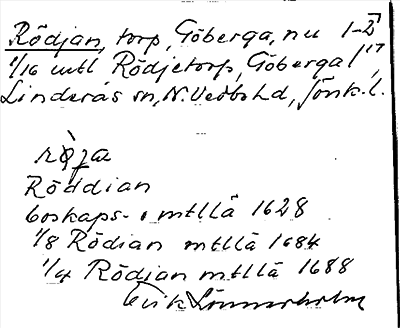 Rödjan, torp, Göberga, nu 1-2
1/16 mtl Rödjetorp, Göberga 1 17,
Linderås sn, N. Vedbo hd, Jönk. l.
röja
Röddian
boskaps- o mtllä 1628
1/8 Rödian mtllä 1684
1/4 Rödjan mtllä 1688
Erik Linnerholm